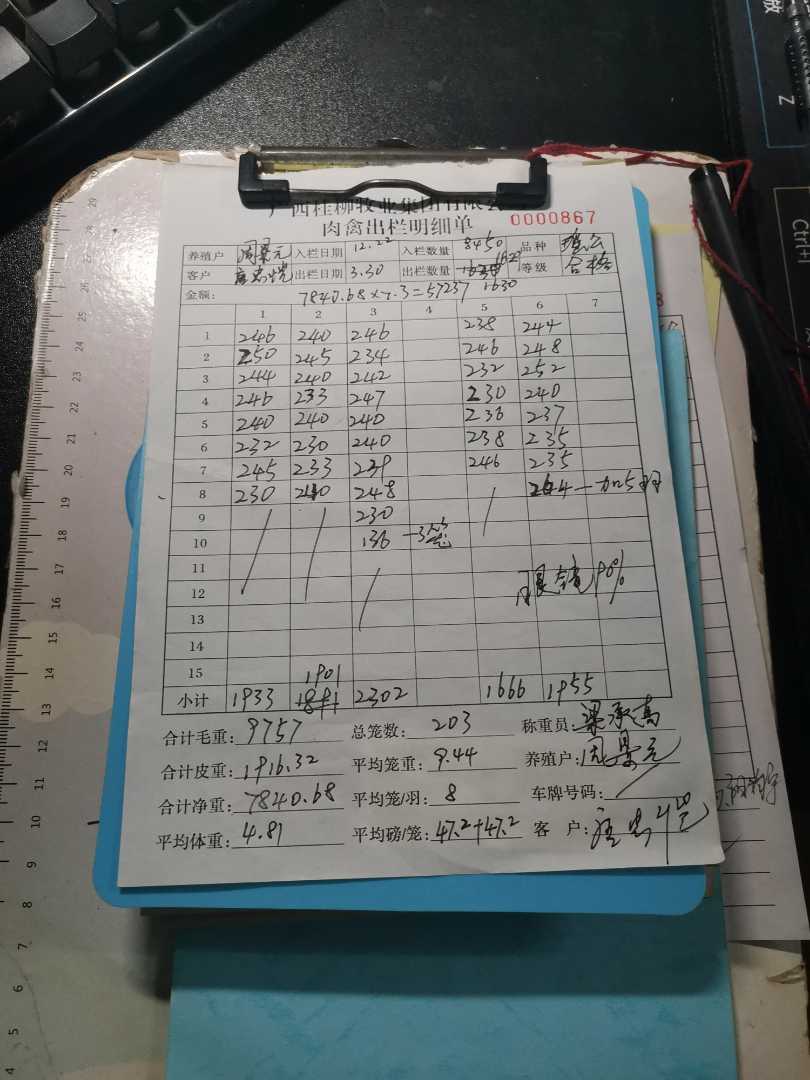 广西桂柳牧业集团有限公
肉禽出栏明细单 0000867
养殖户 周景元 入栏日期 12.22 入栏数量 8450 品种
客户 出栏日期 3.30 出栏数量 1629 等级 合格
金额: 7840.68×7.3=57237 1630
1 2 3 4 5 6 7
1 246 240 246 238 244
2 250 245 234 246 248
3 244 240 242 232 252
4 246 233 247 230 240
5 240 240 240 236 237
6 232 230 240 238 235
7 245 233 239 246 235
8 230 240 248 264 —加5羽
9 230
10 136 —3笼
11
12 眼镜 90%
13
14
15 1901
小计 1933 1891 2302 1666 1955
合计毛重: 9757 总笼数: 203 称重员: 梁承高
合计皮重: 1916.32 平均笼重: 9.44 养殖户: 周景元
合计净重: 7840.68 平均笼/羽: 8 车牌号码:
平均体重: 4.81 平均磅/笼: 47.2+47.2 客 户: